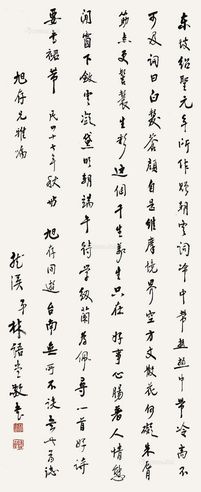 東坡紹聖元年所作贈朝雲詞冷中帶熱熱中帶冷高不
可及詞曰白髮蒼顏自是維摩境界空方丈散花何礙朱唇
筯點更髻鬟生彩這個千生萬生只在好事心腸著人情態
閒窗下斂雲凝黛明朝端午待學紉蘭為佩尋一首好詩
要書裙帶 民四十七年秋 旭存同遊台南無所不談
旭存兄雅屬
龍溪弟林語堂敬書